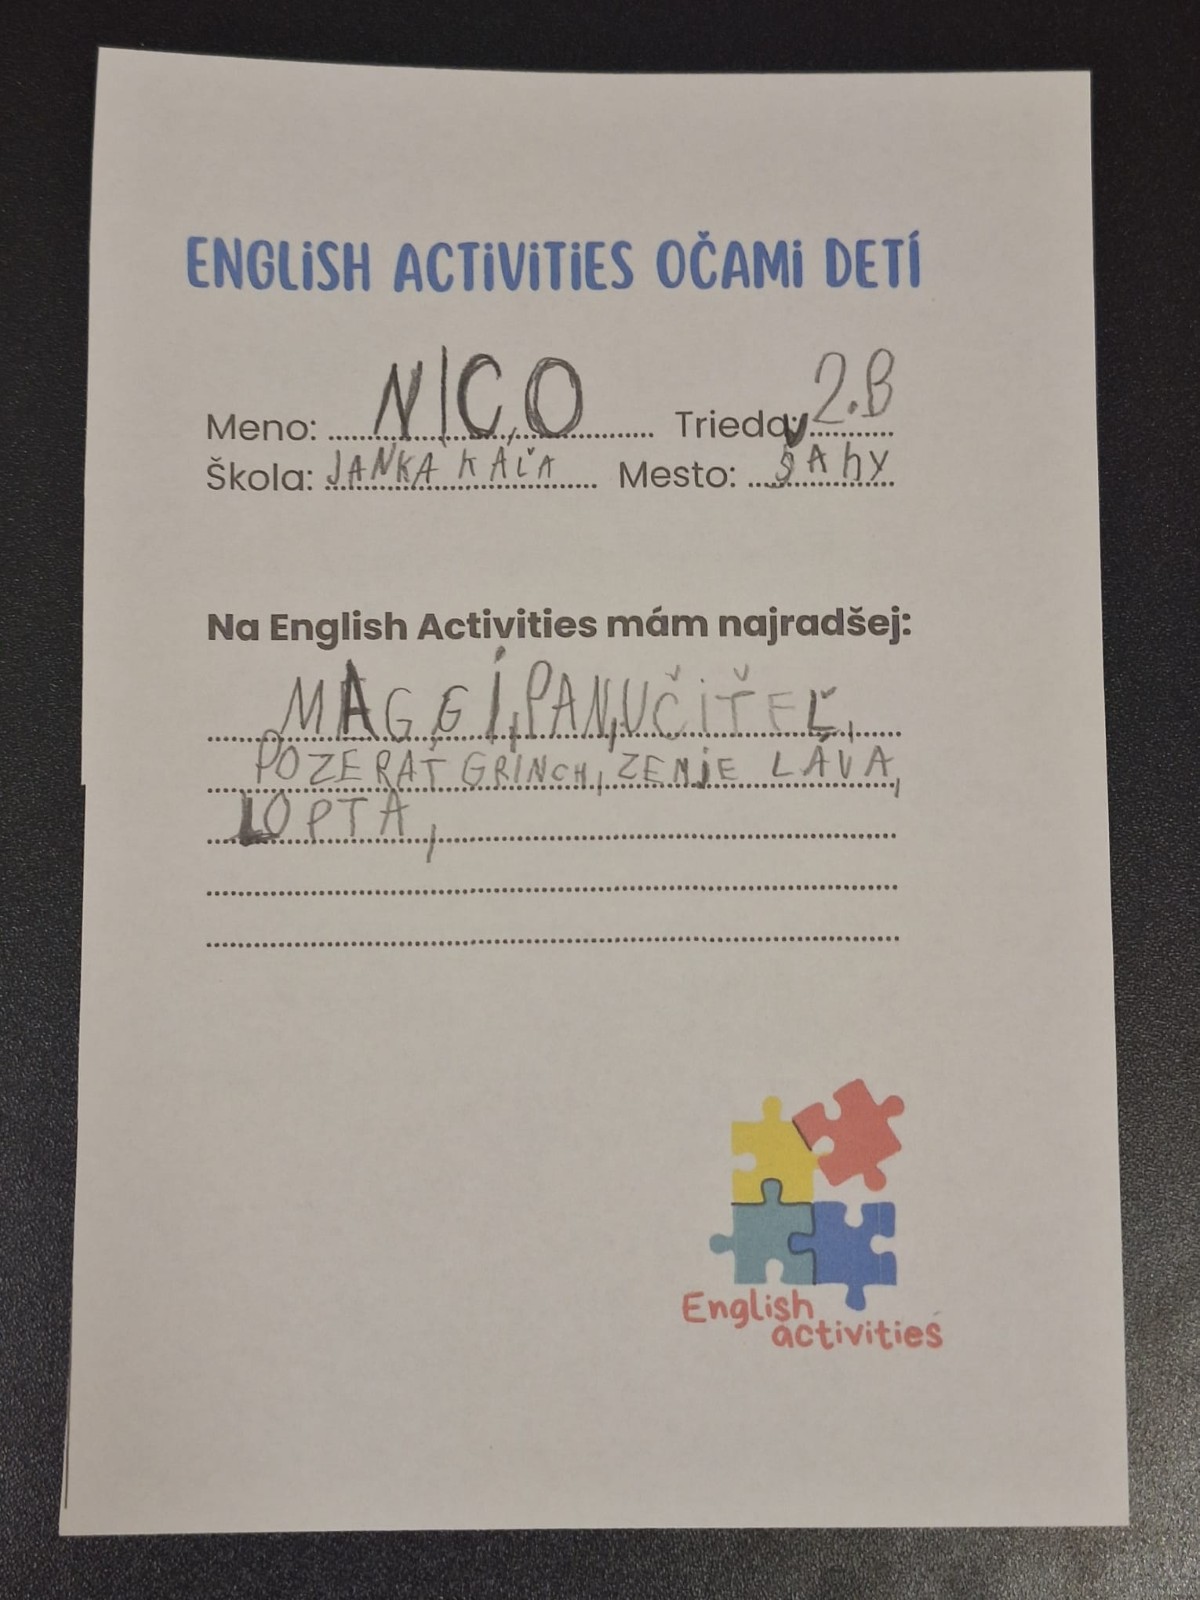 ENGLISH ACTIVITIES OČAMI DETÍ
Meno: NICO Trieda: 2.B
Škola: JANKA KAĽA Mesto: ŠAhY
Na English Activities mám najradšej:
MAGGÍ, PAN, UČIŤEĽ,
POZERAŤ GRINCH, ZEMJE LÁVA,
LOPTA,
English
activities